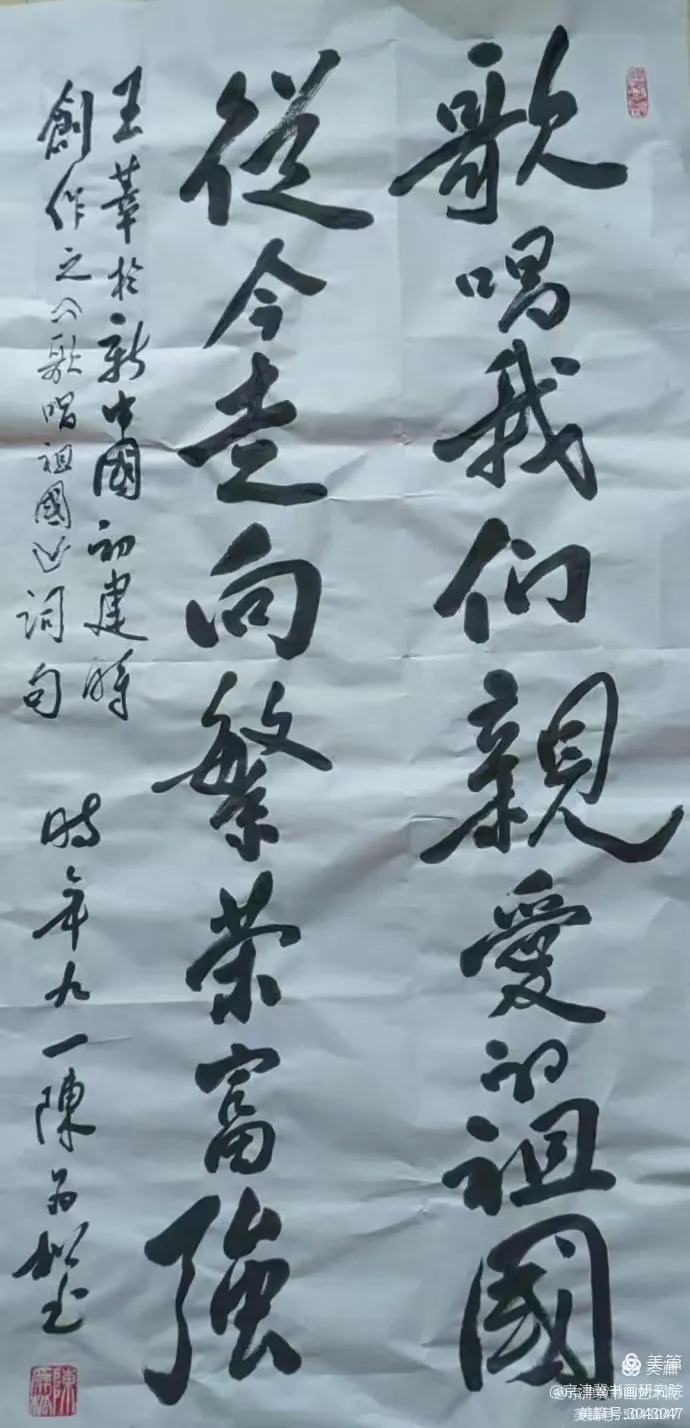 歌唱我们親愛的祖國
從今走向繁荣富強
王莘於新中國初建時
創作之《歌唱祖國》詞句
時年九一陳
美篇
@京津冀书画研究院
美篇号:3043047